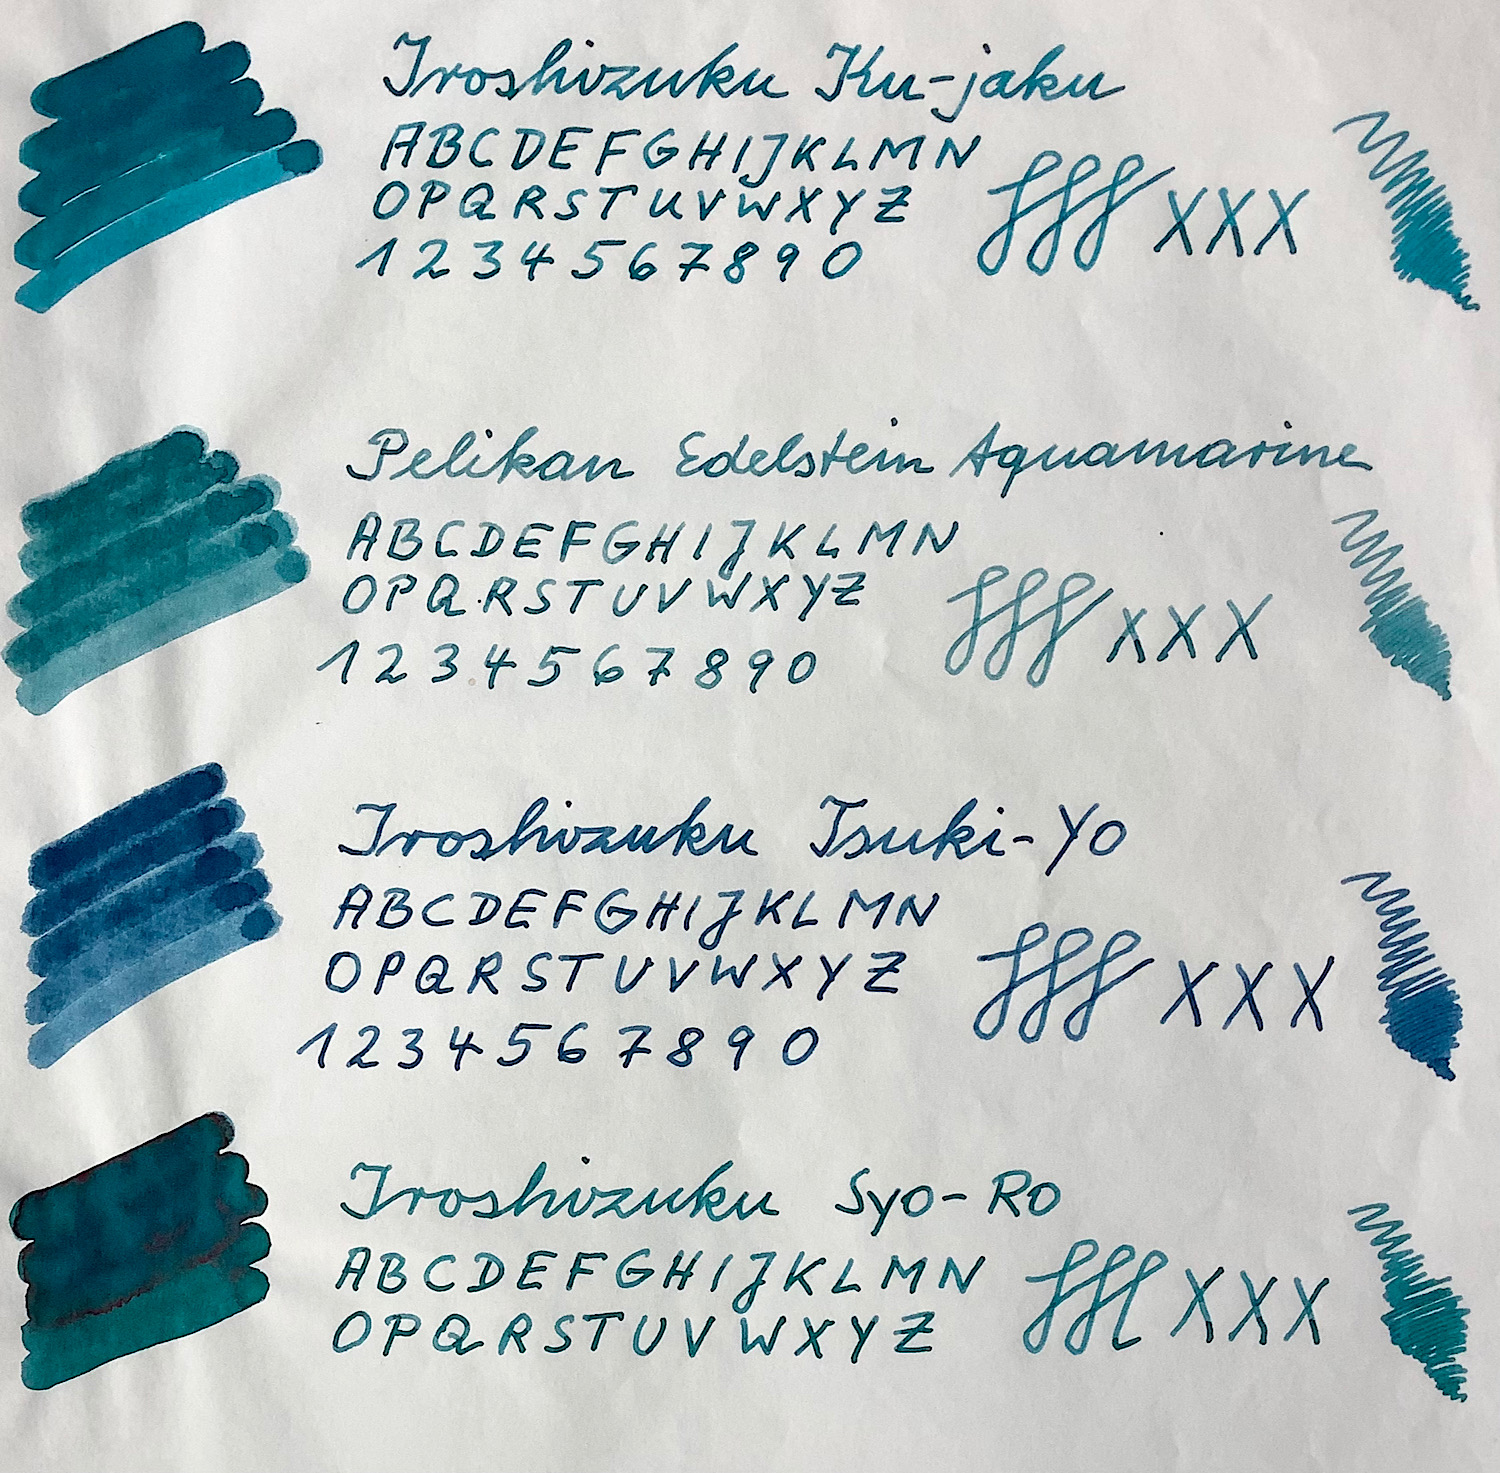 Iroshizuku Ku-jaku
ABCDEFGHIJKLMN
OPQRSTUVWXYZ
1234567890
fff XXX
Pelikan Edelstein Aquamarine
ABCDEFGHIJKLMN
OPQRSTUVWXYZ
1234567890
fff XXX
Iroshizuku Tsuki-Yo
ABCDEFGHIJKLMN
OPQRSTUVWXYZ
1234567890
fff XXX
Iroshizuku Syo-Ro
ABCDEFGHIJKLMN
OPQRSTUVWXYZ
ffl XXX